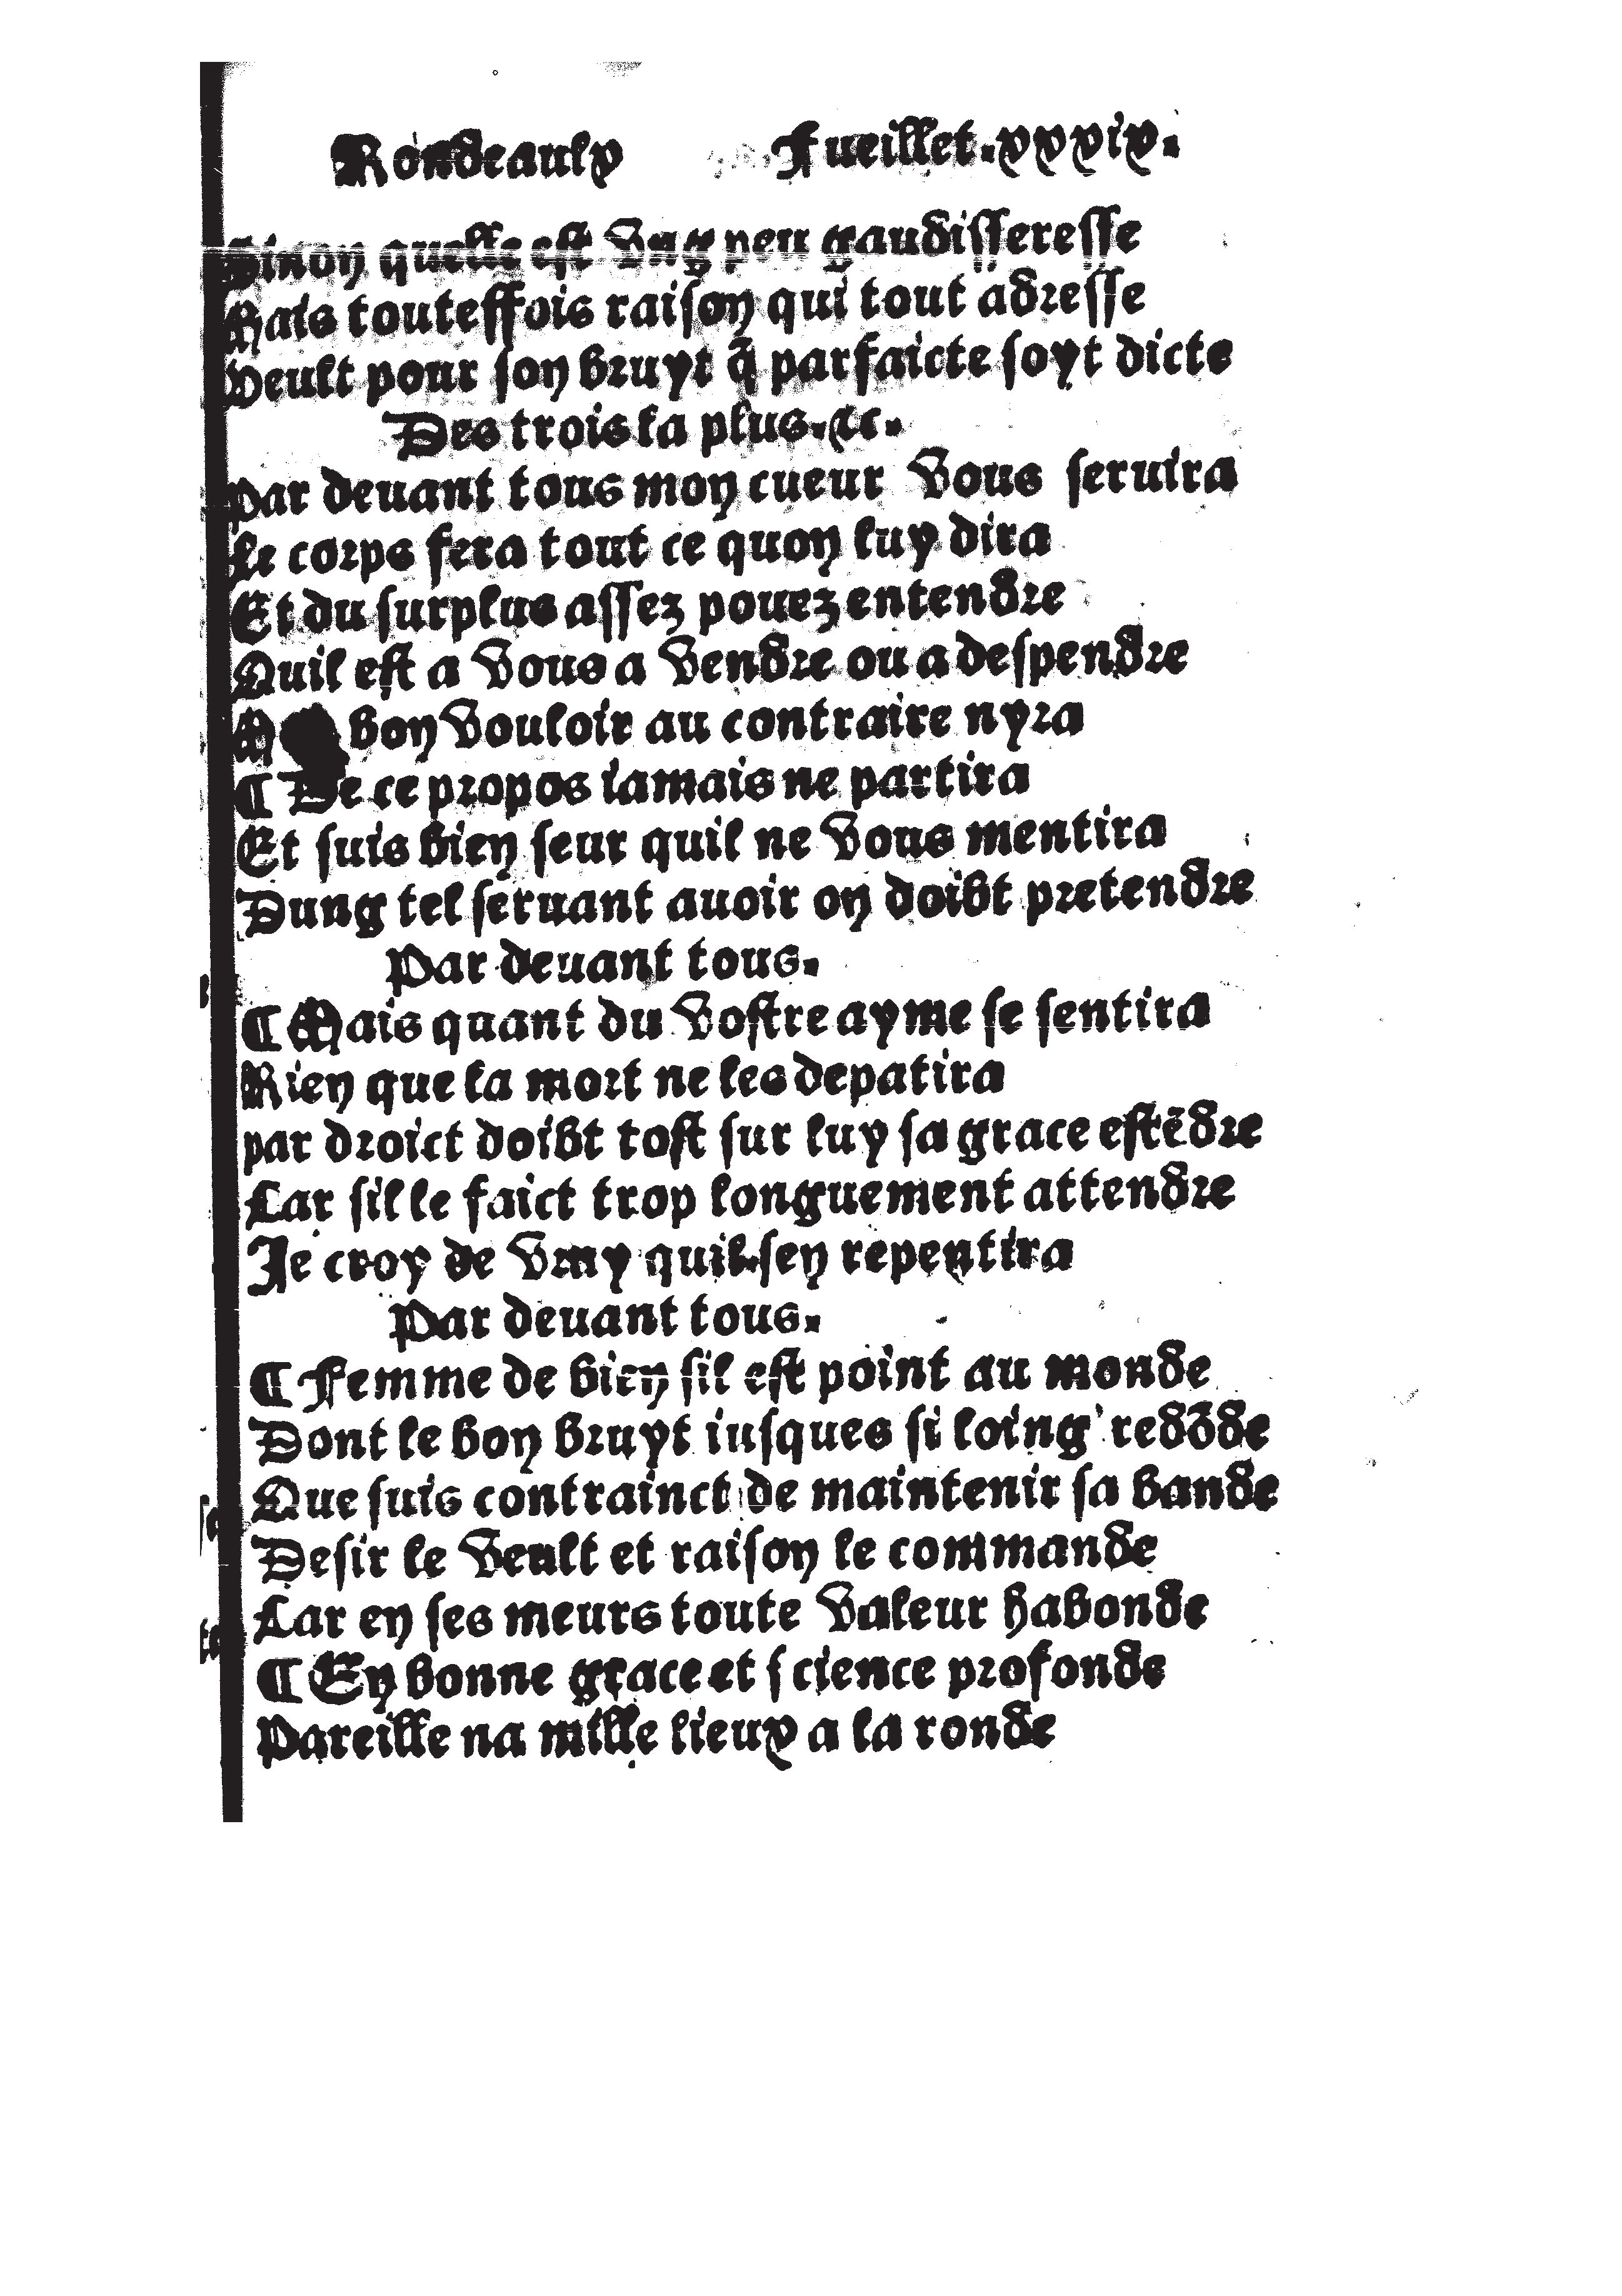 Rondeaulx Fueillet.xxxix.
Sinon quelle est vng peu gaudisseresse
Mais touteffois raison qui tout adresse
Veult pour son bruyt q̄ parfaicte soyt dicte
Des trois la plus.⁊c.
Par deuant tous mon cueur vous seruira
Le corps fera tout ce quon luy dira
Et du surplus assez pouez entendre
Quil est a vous a vendre ou a despendre
bon vouloir au contraire nyra
¶ De ce propos iamais ne partira
Et suis bien seur quil ne vous mentira
Dung tel seruant auoir on doibt pretendre
Par deuant tous.
¶ Mais quant du vostre ayme se sentira
Rien que la mort ne les depatira
par droict doibt tost sur luy sa grace estēdre
Car sil le faict trop longuement attendre
Je croy de vray quil sen repentira
Par deuant tous.
¶ Femme de bien sil est point au monde
Dont le bon bruyt iusques si loing redōde
Que suis contrainct de maintenir sa bande
Desir le veult et raison le commande
Car en ses meurs toute valeur habonde
¶ En bonne grace et science profonde
Pareille na mille lieux a la ronde